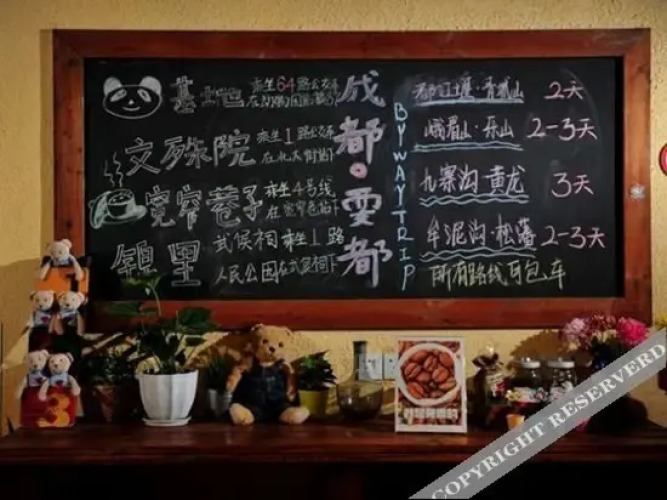 基地 乘坐64路公交车
文殊院 乘坐1路公交车
宽窄巷子 乘坐4号线
在宽窄巷站下
锦里 武侯祠乘坐1路
人民公园在武侯祠下
成都·耍都
BYWAYTRIP
都江堰·青城山 2天
峨眉山·乐山 2-3天
九寨沟·黄龙 3天
牟泥沟·松藩 2-3天
所有路线可包车
3
COPYRIGHT RESERVERD